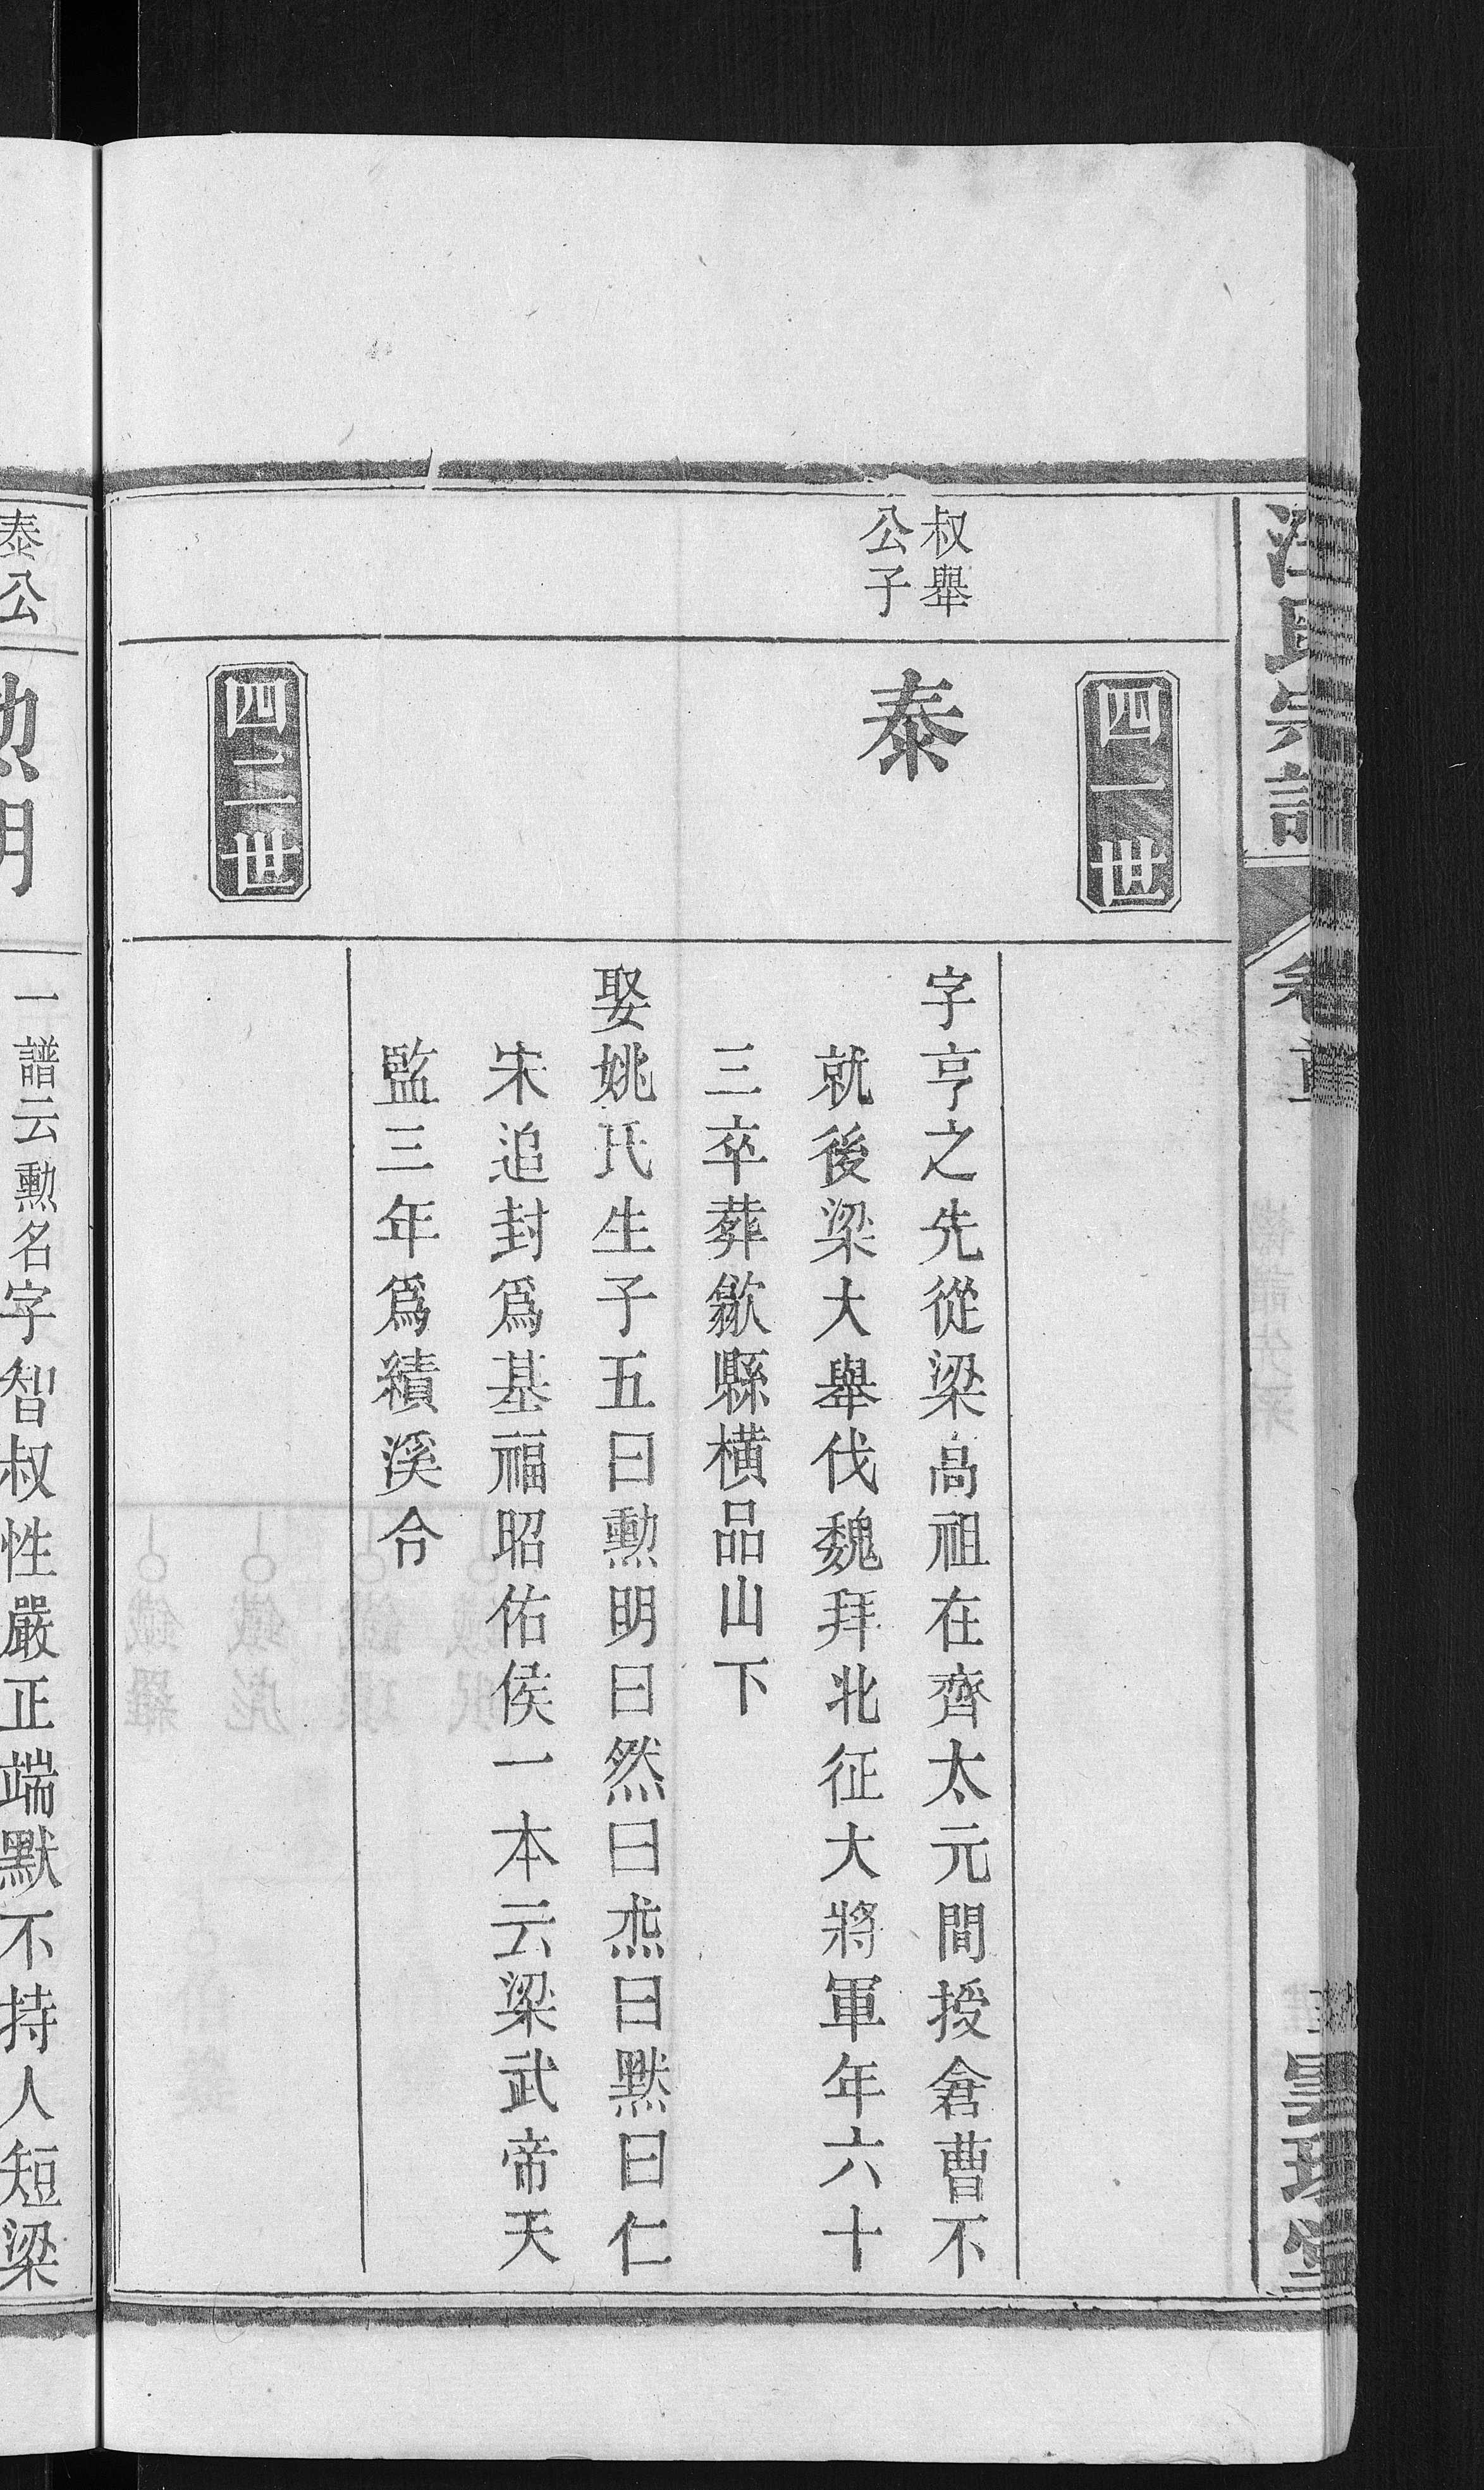 汪氏宗譜
卷首
雲現堂
四一世
叔舉
公子
泰
字亨之先從梁高祖在齊太元間授倉曹不
就後梁大舉伐魏拜北征大將軍年六十
三卒葬歙縣橫品山下
娶姚氏生子五曰勲明曰然曰烝曰黙曰仁
宋追封爲基福昭佑侯一本云梁武帝天
監三年爲績溪令
四二世
泰公
勲明
一譜云勲名字智叔性嚴正端默不持人短梁